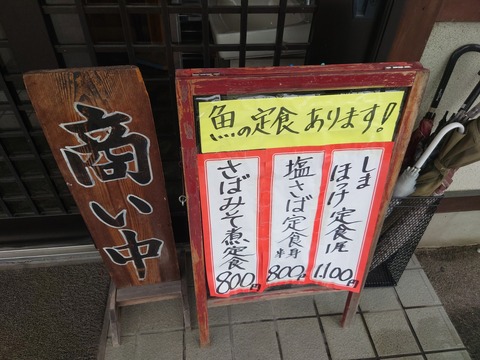 商い中
魚の定食 あります!
しま
ほっけ定食
1,100円
塩さば定食
800円
さばみそ煮定食
800円